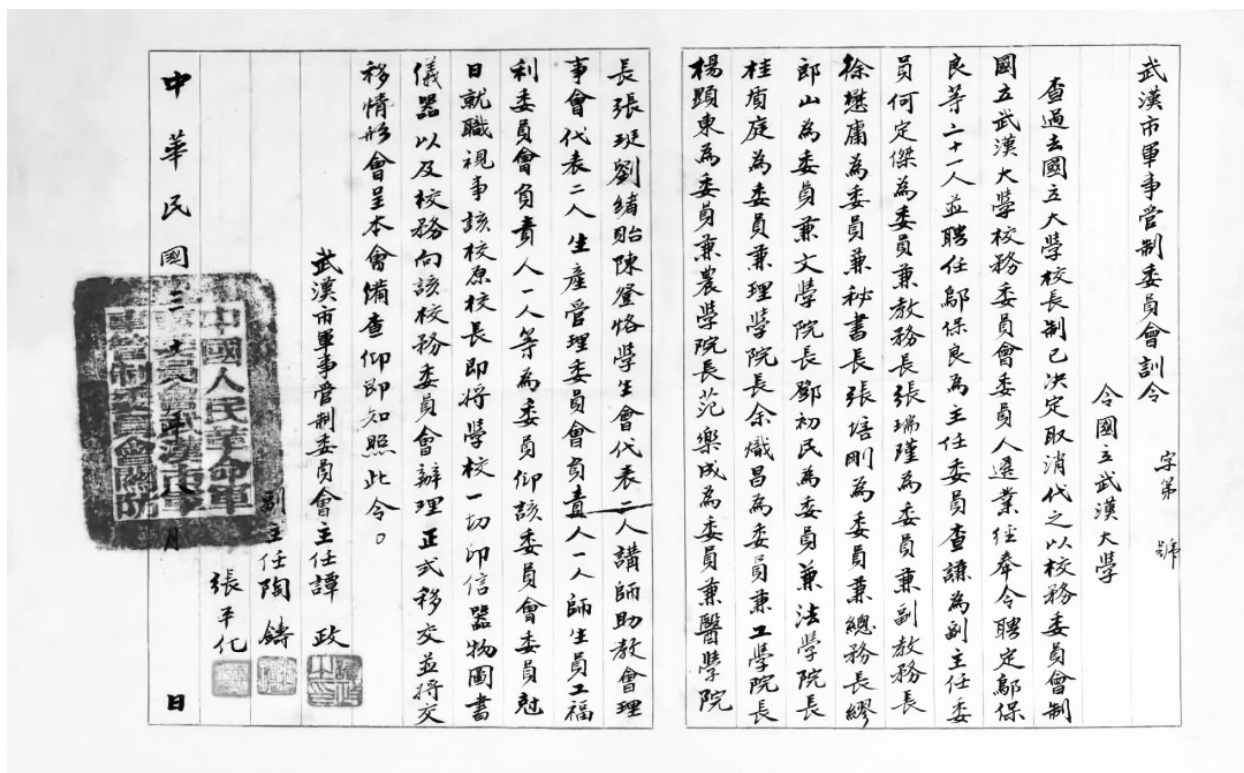 武漢市軍事管制委員會訓令　字第　號
令國立武漢大學
查過去國立大學校長制已決定取消代之以校務委員會制
國立武漢大學校務委員會委員人選業經奉令聘定鄔保
良等二十一人並聘任鄔保良為主任委員查謙為副主任委
員何定傑為委員兼教務長張瑞瑾為委員兼副教務長
徐懋庸為委員兼秘書長張培剛為委員兼總務長繆
郎山為委員兼文學院長鄧初民為委員兼法學院長
桂質庭為委員兼理學院長余熾昌為委員兼工學院長
楊顕東為委員兼農學院長范樂成為委員兼醫學院
長張珽劉緒貽陳登恪學生會代表二人講師助教會理
事會代表二人生產管理委員會負責人一人師生員工福
利委員會負責人一人等為委員仰該委員會委員尅
日就職視事該校原校長即將學校一切印信器物圖書
儀器以及校務向該校務委員會辦理正式移交並將交
移情形會呈本會備查仰即知照此令。
武漢市軍事管制委員會主任譚政
副主任陶鑄
張平化
中華民國三十八年八月　日
中國人民革命軍
事委員會武漢市軍
事管制委員會關防